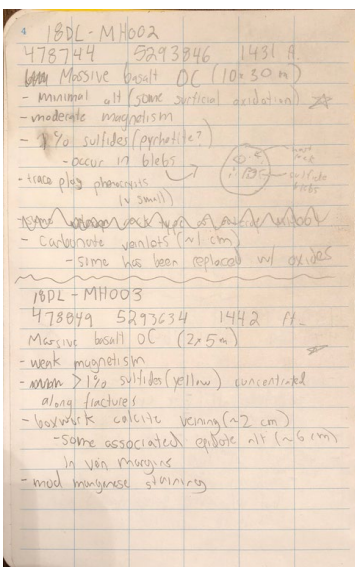 4 18DL-MH002
478744 5293846 1431 ft.
Massive basalt OC (10x30m)
- minimal alt (some surficial oxidation)
- moderate magnetism
- 1% sulfides (pyrhotite?)
- occur in blebs
- trace plag phenocrysts
(v small)
host
rock
sulfide
blebs
- Carbonate veinlets (~1 cm)
- some has been replaced w/ oxides
18DL-MH003
478849 5293634 1442 ft.
Massive basalt OC (2x5m)
- weak magnetism
- >1% sulfides (yellow) concentrated
along fractures
- boxwork calcite veining (~2 cm)
- some associated epidote alt (~6 cm)
in vein margins
- mod manganese staining